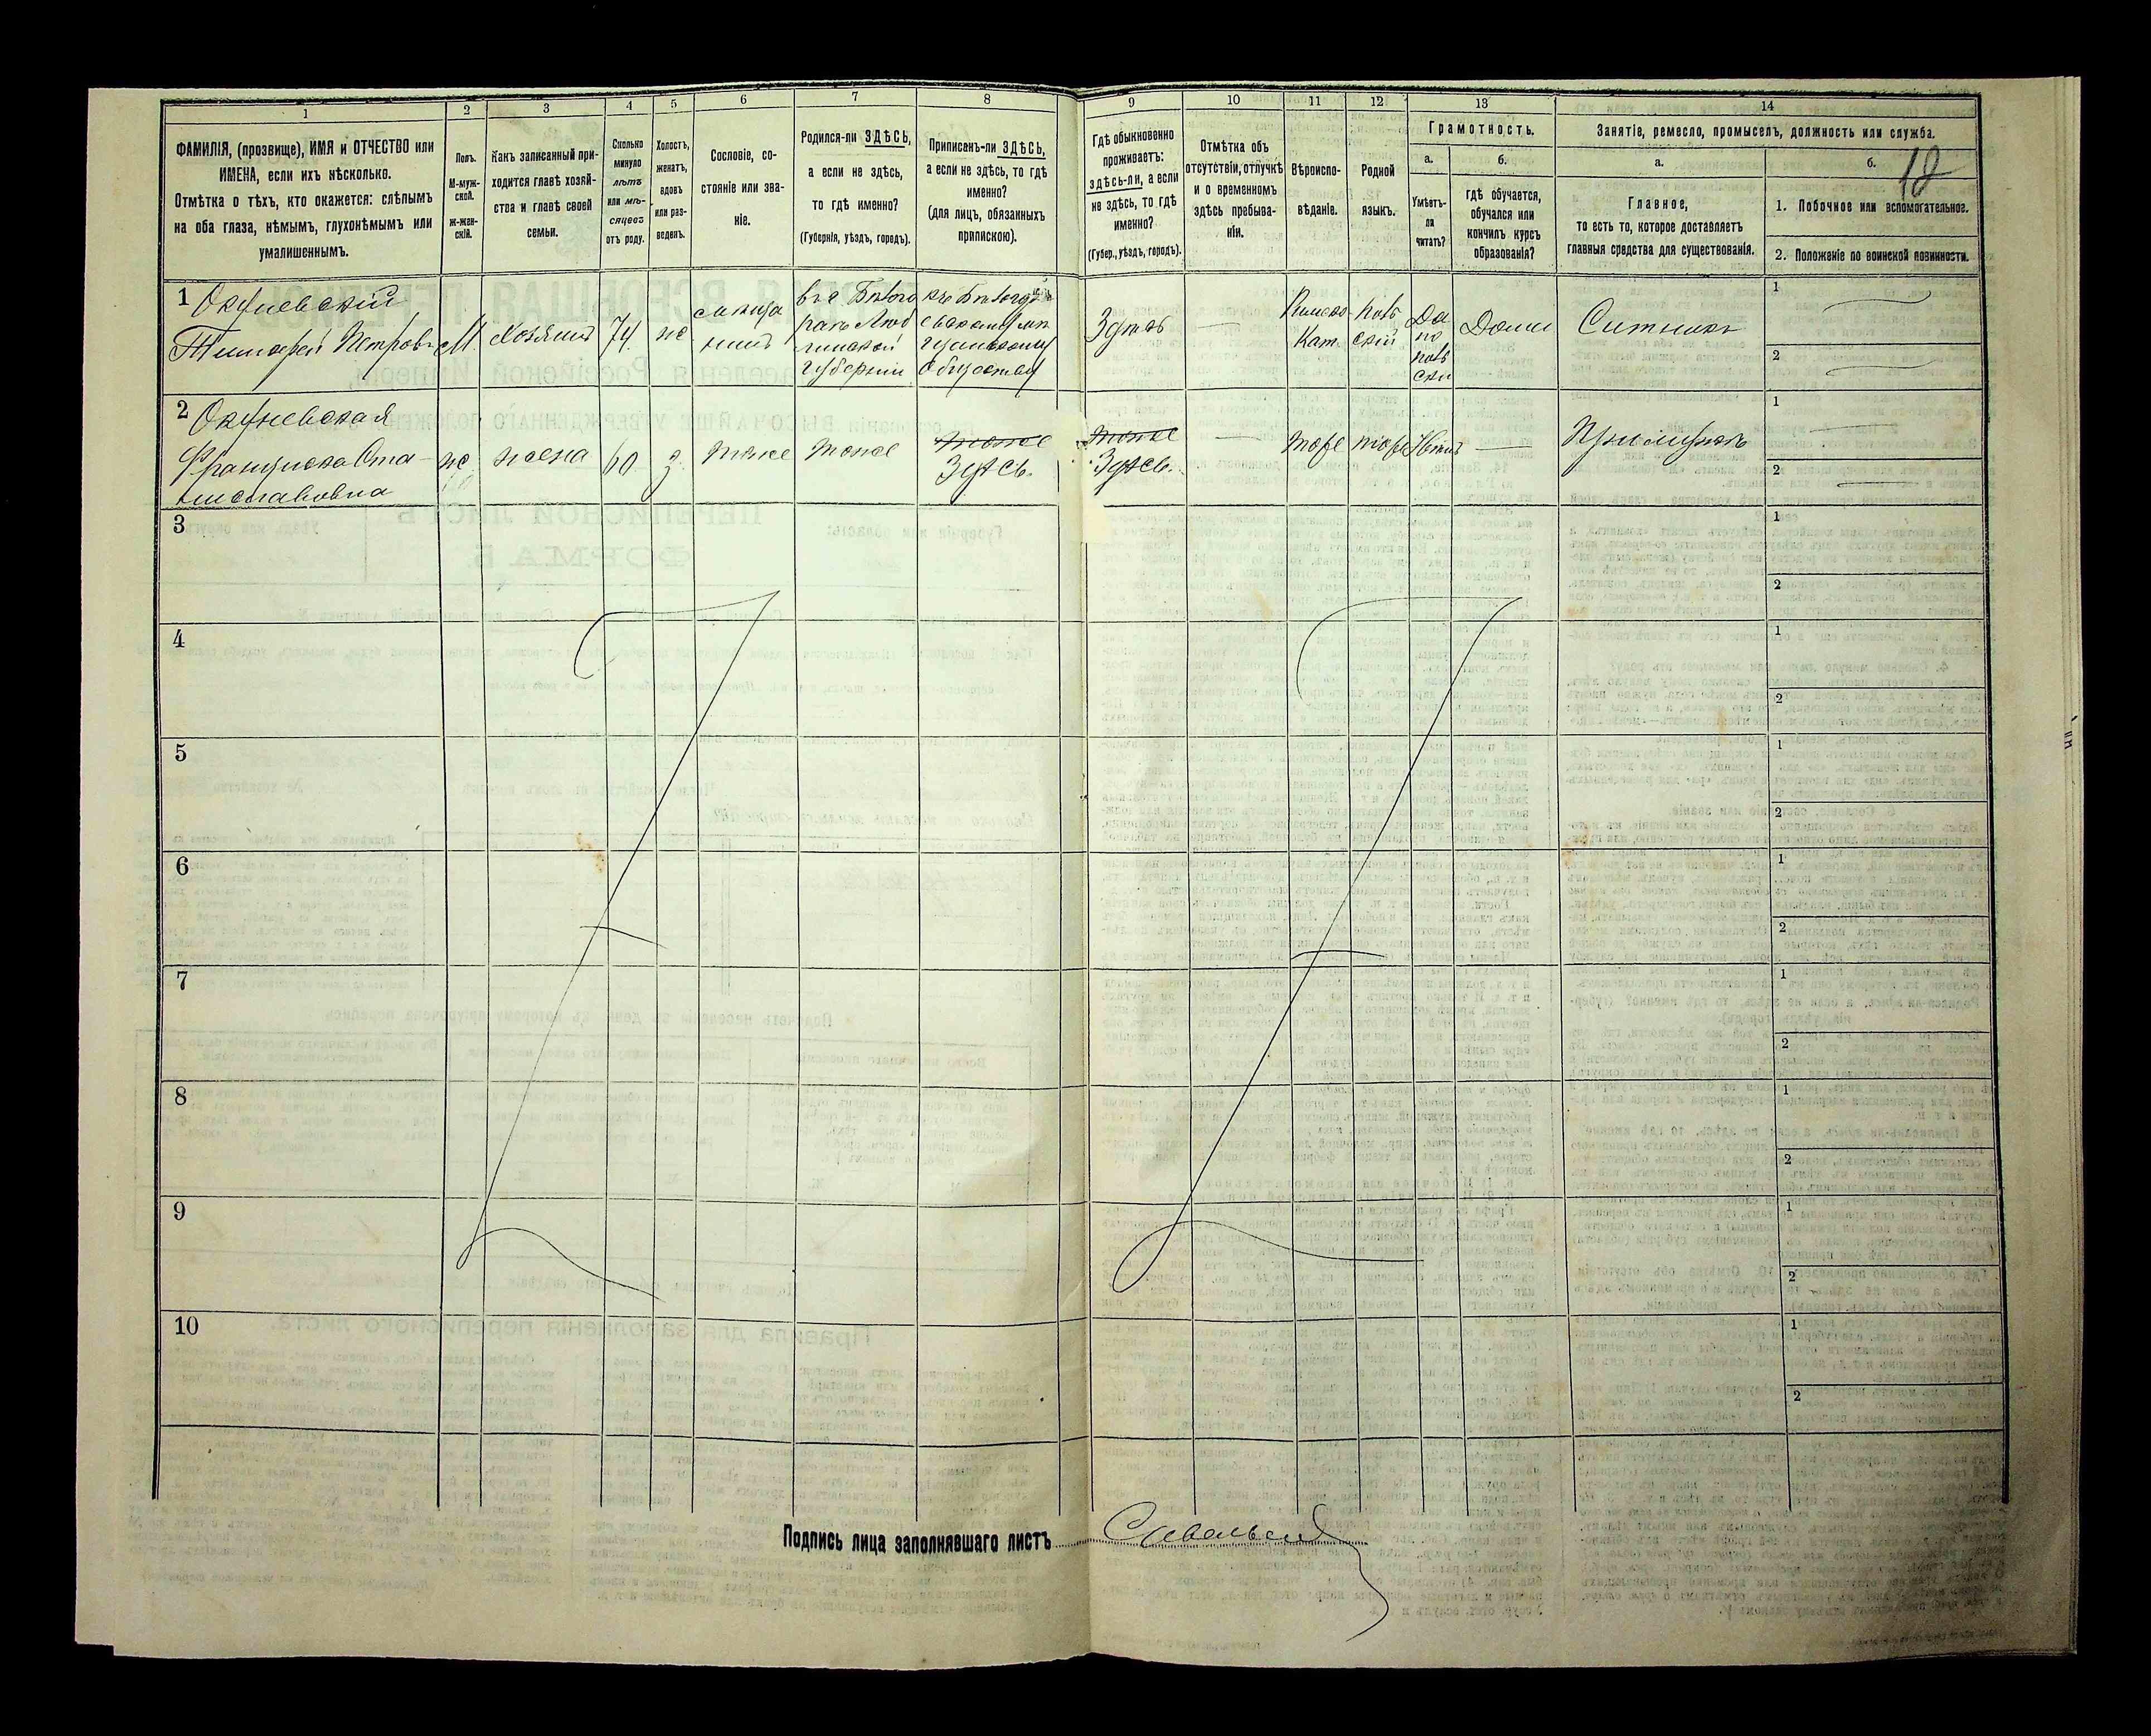 1 2 3 4 5 6 7 8 9 10 11 12 13 14
ФАМИЛІЯ, (прозвище), ИМЯ и ОТЧЕСТВО или
ИМЕНА, если ихъ нѣсколько.
Отмѣтка о тѣхъ, кто окажется: слѣпымъ
на оба глаза, нѣмымъ, глухонѣмымъ или
умалишеннымъ.
Полъ.
М-муж-
ской.
ж-жен-
скій.
Какъ записанный при-
ходится главѣ хозяй-
ства и главѣ своей
семьи.
Сколько
минуло
лѣтъ
или мѣ-
сяцевъ
отъ роду.
Холостъ,
женатъ,
вдовъ
или раз-
веденъ.
Сословіе, со-
стояніе или зва-
ніе.
Родился-ли ЗДѢСЬ,
а если не здѣсь,
то гдѣ именно?
(Губернія, уѣздъ, городъ).
Приписанъ-ли ЗДѢСЬ,
а если не здѣсь, то гдѣ
именно?
(для лицъ, обязанныхъ
припискою).
Гдѣ обыкновенно
проживаетъ:
здѣсь-ли, а если
не здѣсь, то гдѣ
именно?
(Губер., уѣздъ, городъ).
Отмѣтка объ
отсутствіи, отлучкѣ
и о временномъ
здѣсь пребыва-
ніи.
Вѣроиспо-
вѣданіе.
Родной
языкъ.
Грамотность.
а.
Умѣетъ-
ли
читать?
б.
гдѣ обучается,
обучался или
кончилъ курсъ
образованія?
Занятіе, ремесло, промыселъ, должность или служба.
а.
Главное,
то есть то, которое доставляетъ
главныя средства для существованія.
б.
18
1. Побочное или вспомогательное.
2. Положеніе по воинской повинности.
1
Окуневскій
Тимофей Петровъ
М.
Хозяинъ
74
же
мѣща
нинъ
въ г. Бѣлго
раѣ Люб
линской
губерніи
къ
мѣ
щанскому
Обществу
Здѣсь
—
Римско
Кат.
поль
скій
Да
по
поль
ски
Дома
Ситникъ
1
2
2
Окуневская
Франциска Ста-
ниславовна
же
жена
60
з.
тоже
тоже
тоже
Здѣсь.
тоже
Здѣсь.
—
тоже
тоже
Нѣтъ
—
При мужѣ
1
2
3
1
2
4
1
2
5
1
2
6
1
2
7
1
2
8
1
2
9
1
2
10
1
2
Подпись лица заполнявшаго листъ